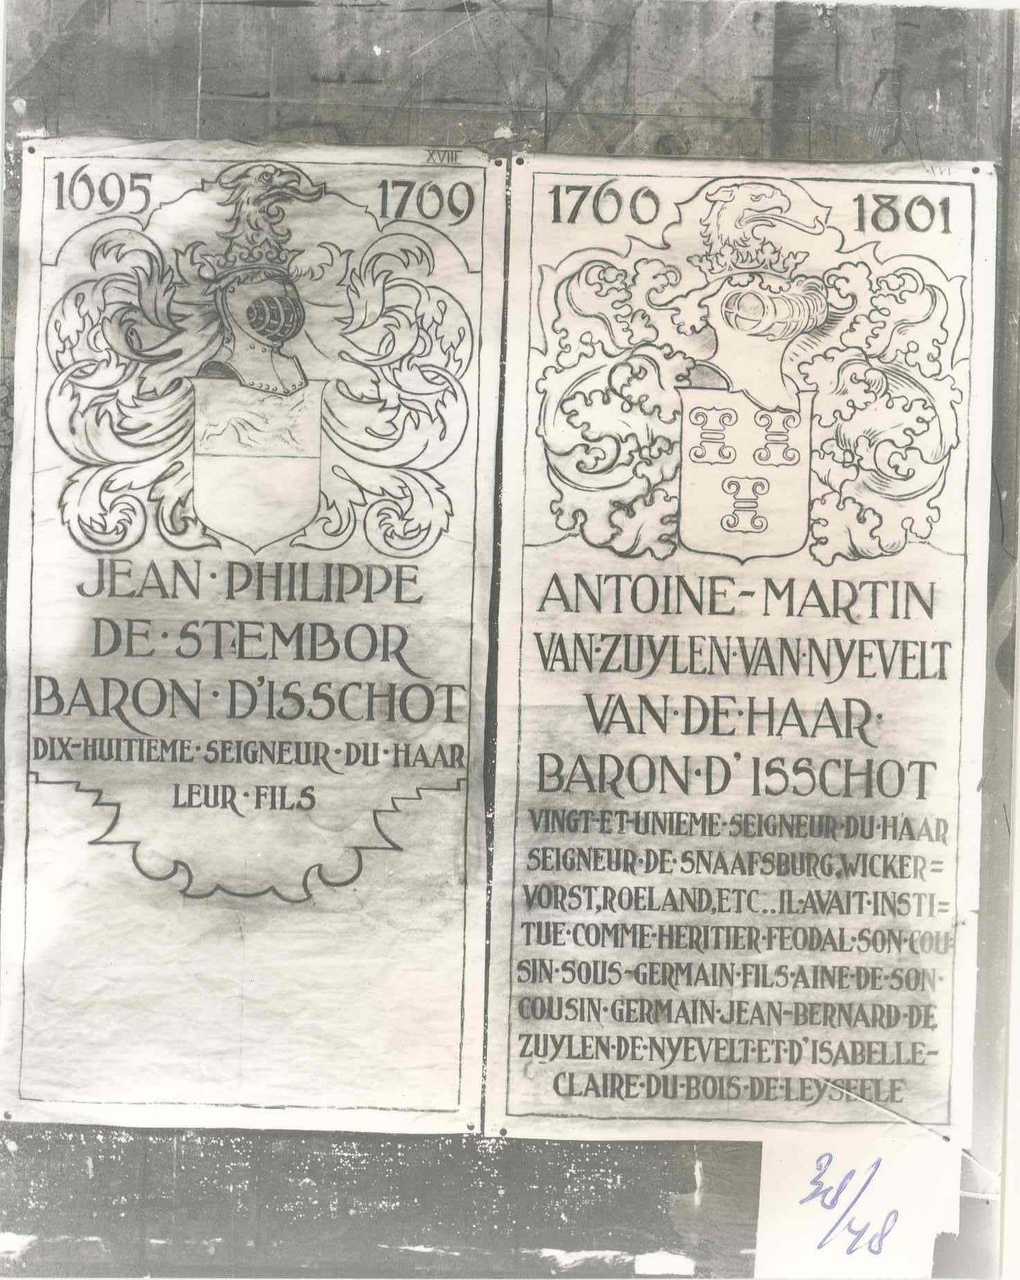 XVIII
1695 1709
JEAN·PHILIPPE
DE·STEMBOR
BARON·D'ISSCHOT
DIX-HUITIEME·SEIGNEUR·DU·HAAR
LEUR·FILS
1760 1801
ANTOINE-MARTIN
VAN·ZUYLEN·VAN·NYEVELT
VAN·DE·HAAR·
BARON·D'ISSCHOT
VINGT·ET·UNIEME·SEIGNEUR·DU·HAAR
SEIGNEUR·DE·SNAAFSBURG,WICKER=
VORST,ROELAND,ETC..IL·AVAIT·INSTI=
TUE·COMME·HERITIER·FEODAL·SON·COU=
SIN·SOUS-GERMAIN·FILS·AINE·DE·SON·
COUSIN·GERMAIN·JEAN-BERNARD·DE
ZUYLEN·DE·NYEVELT·ET·D'ISABELLE-
CLAIRE·DU·BOIS·DE·LEYSEELE